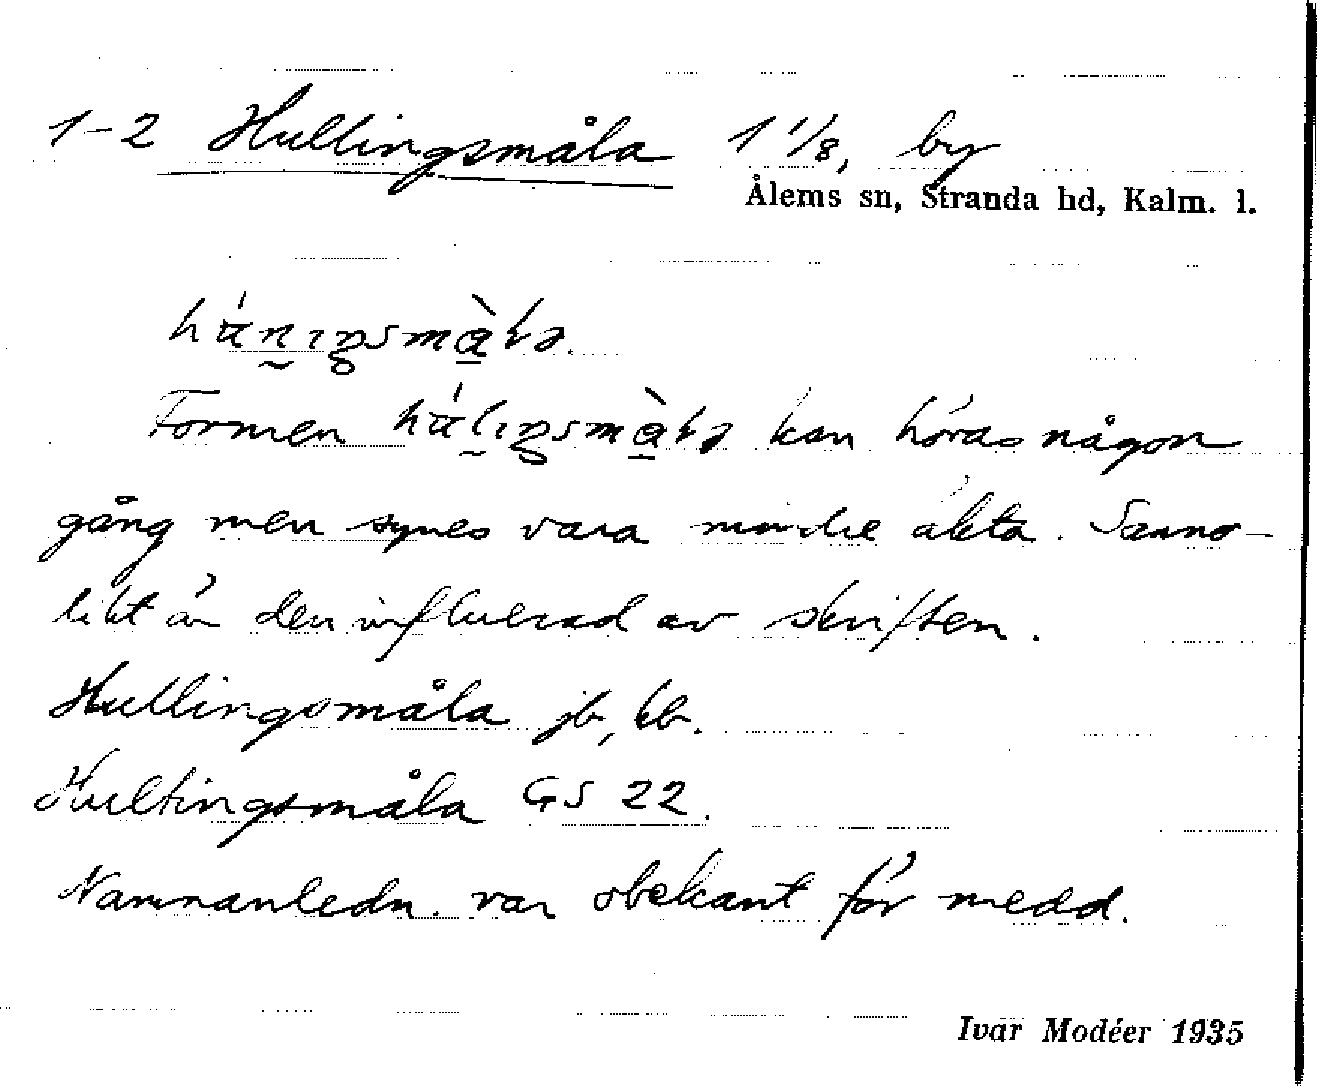 1-2 Hullingsmåla 1 1/8, by
Ålems sn, Stranda hd, Kalm. l.
Formen kan höras någon
gång men synes vara mindre äkta. Sanno-
likt är den influerad av skriften.
Hullingsmåla jb, kb.
Hultingsmåla GS 22.
Namnanledn. var obekant för medd.
Ivar Modéer 1935